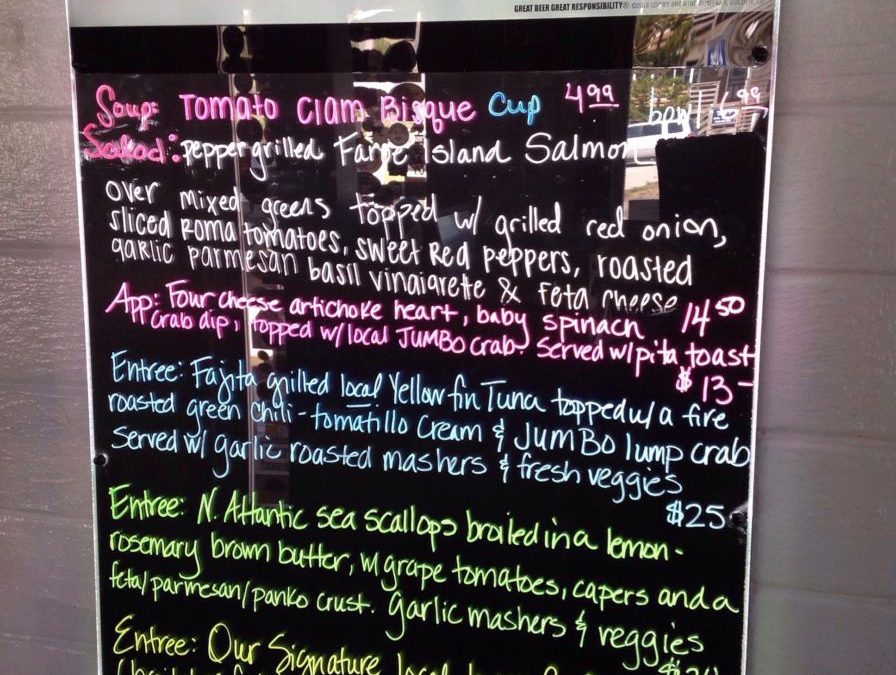 GREAT BEER GREAT RESPONSIBILITY®
Soup: Tomato Clam Bisque Cup 4.99 bowl 6.99
Salad: peppergrilled Faroe Island Salmon
over mixed greens topped w/ grilled red onion,
sliced Roma tomatoes, sweet Red peppers, roasted
garlic parmesan basil vinaigrette & feta cheese
14.50
App: Four cheese artichoke heart, baby spinach
crab dip, topped w/ local JUMBO crab. Served w/ pita toast
$13-
Entree: Fajita grilled local Yellow fin Tuna topped w/ a fire
roasted green chili-tomatillo Cream & JUMBO lump crab
Served w/ garlic roasted mashers & fresh veggies
$25
Entree: N. Atlantic sea scallops broiled in a lemon-
rosemary brown butter, w/ grape tomatoes, capers and a
feta/parmesan/panko crust. Garlic mashers & veggies
Entree: Our Signature local